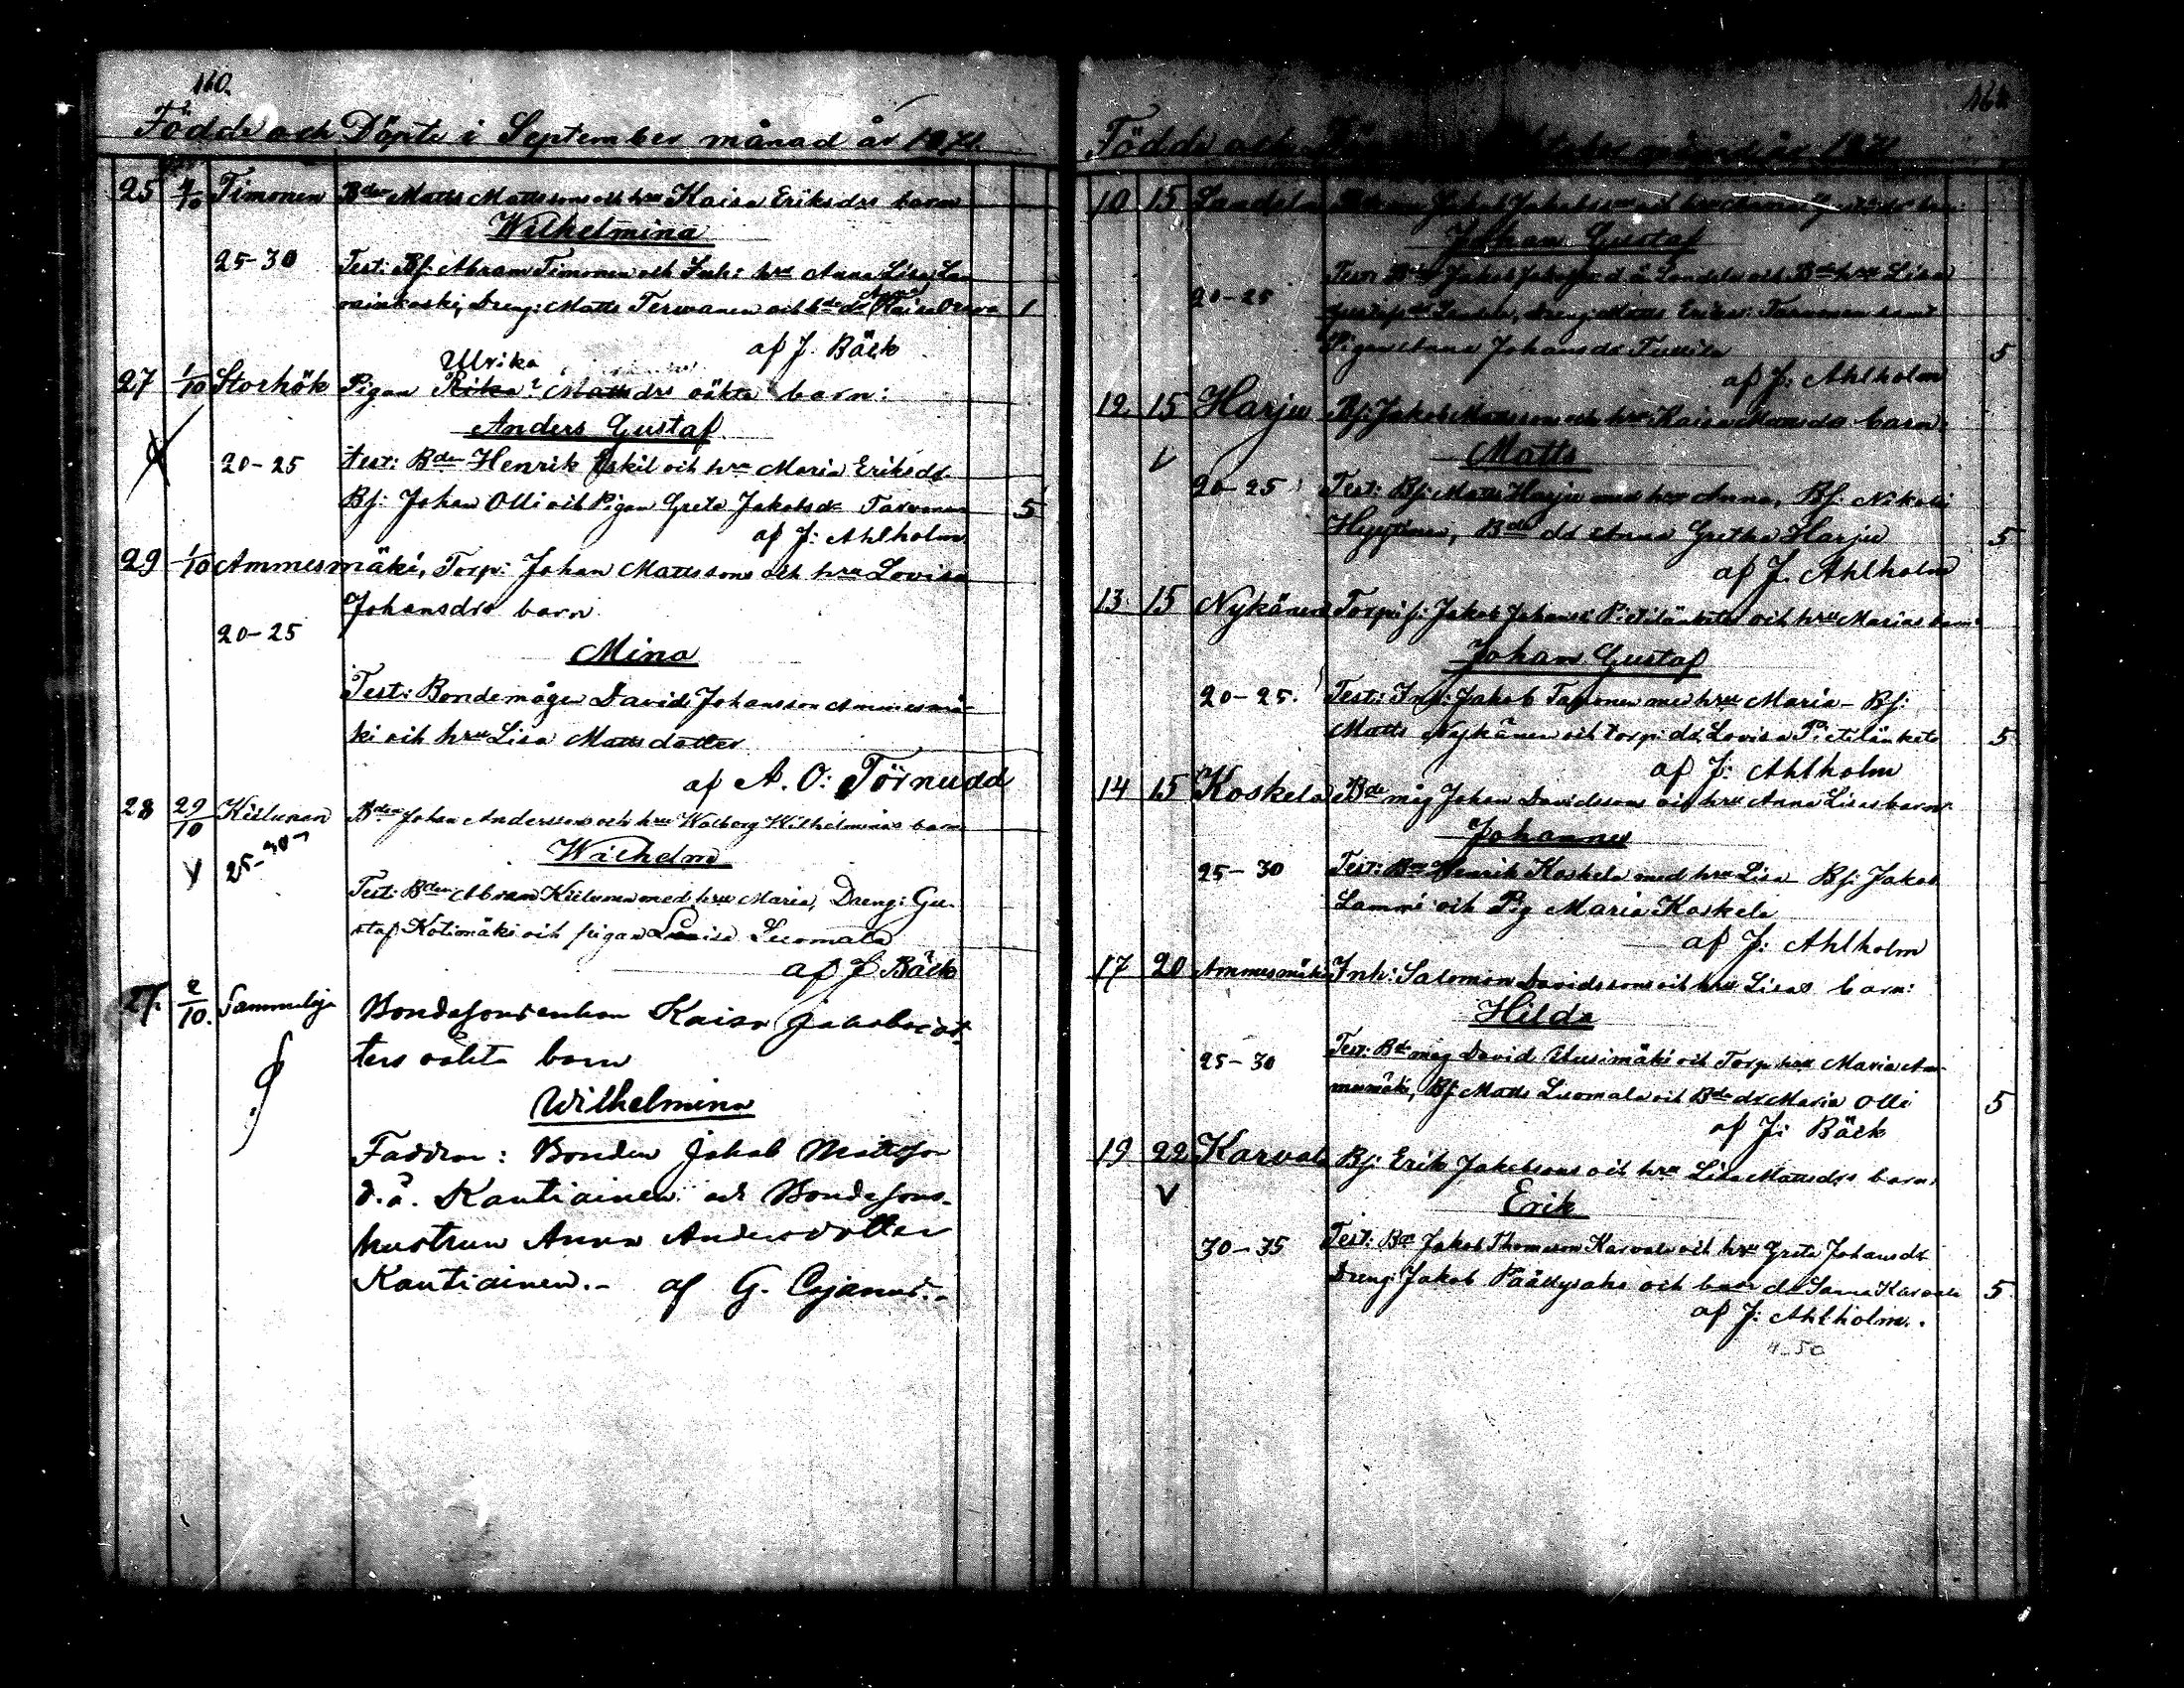 160.
Födde och Döpte i September månad år 1871.
25 Timonen Bden Matts Mattssons och hru Kaisa Eriksdrs barn
Wilhelmina
25-30 Test: Bf: Abram Timonen och Inh: hru Anna Lisa
Dreng: Matts Terwanen och
af J. Bäck
Ulrika
27 1/10 Storhök Pigan Rika Mattsdrs oäkta barn:
Anders Gustaf
20-25 Test: Bden Henrik Eskil och hru Maria Eriksdr
Bf: Johan Olli och Pigan Greta Jakobsdr Tarvonen 5
af J: Ahlholm
29 1/10 Ammesmäki, Torp: Johan Mattssons och hru Lovisa
Johansdrs barn
20-25
Mina
Test: Bondemågen David Johansson Ammesmä-
ki och hru Lisa Mattsdotter
af A. O: Törnudd
28 29/10 Kiilunen Bden Johan Anderssons och hru Walborg Wilhelminas barn
25-30 Wilhelm
Test: Bden Abram Kiilunen med hru Maria, Dreng: Gu-
staf Kotimäki och pigan Lovisa Luomala
af J Bäck
27. 2/10. Sammeloja Bondesonsenkan Kaisa Jakobsdot-
ters oäkta barn
Wilhelmina
Faddrar: Bonden Jakob Mattsson
d.ä. Kautiainen och Bondesons-
hustrun Anna Andersdotter
Kautiainen.- af G. Cajanus.-
Födde och månad år 1871
10 15 Sandela Jakob Jakobssons och hru
Johan Gustaf
20-25 Jakob d ä Sandela och Bde hru Lisa
Dreng Matts
Pigan Anna Johansdr 5
af J: Ahlholm
12 15 Harju Bf: Jakob Mattssons och hru Kaisa Mattsdrs barn
Matts
20-25 Test: Bf: Matts Harju med hru Anna, Bf: Nikolai
Hyyppinen, Bde dr Anna Gretha Harju 5
af J. Ahlholm
13 15 Nykänen Torp: Jakob Johanss: Pietilänketo och hru Marias barn
Johan Gustaf
20-25. Test: Inh: Jakob Taponen med hru Maria - Bf:
Matts Nykänen och torp: dr Lovisa Pietilänketo 5
af J: Ahlholm
14 15 Koskela Bde måg Johan Davidssons och hru Anna Lisas barn
Johannes
25-30 Test: Bde Henrik Koskela med hru Lisa Bf: Jakob
Lammi och Pig Maria Koskela
af J: Ahlholm
17 20 Ammesmäki Inh: Salomon Davidssons och hru Lisas barn:
Hilda
25-30 Test: Bde måg David Uusimäki och Torp hru Maria Am-
mesmäki, Bf Matts Luomala och Bde dr Maria Olli 5
af J: Bäck
19 22 Karvala Bf: Erik Jakobssons och hru Lisa Mattsdrs barn:
Erik
30-35 Test: Bde Jakob Thomsson Karvala och hru Greta Johansdr
Dreng: Jakob Päällysaho och dr Sanna Karvala 5
af J: Ahlholm.
4-50